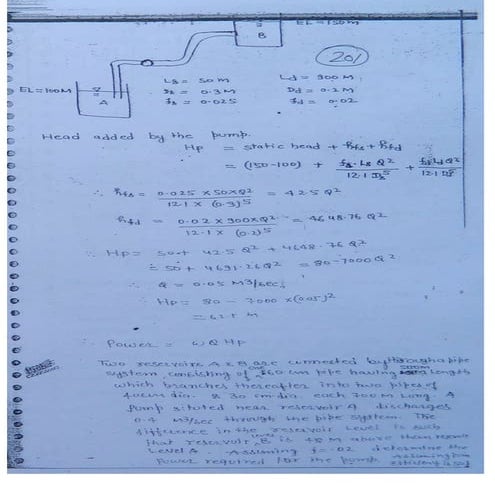 EL = 150m
B
201
EL = 100M
A
Ls = 50m Ld = 900M
Ds = 0.3M Dd = 0.2M
fs = 0.025 fd = 0.02
Head added by the pump.
Hp = static head + hfs + hfd
= (150-100) + fs·Ls Q² / 12.1 Ds⁵ + fd Ld Q² / 12.1 D⁵
∴ hfs = 0.025 × 50 × Q² / 12.1 × (0.3)⁵ = 42.5 Q²
hfd = 0.02 × 900 × Q² / 12.1 × (0.2)⁵ = 4648.76 Q²
∴ Hp = 50 + 42.5 Q² + 4648.76 Q²
= 50 + 4691.26 Q² = 80 - 7000 Q²
∴ Q = 0.05 M³/sec,
∴ Hp = 80 - 7000 × (0.05)²
= 62.1 M
∴ Power = ω Q Hp
Two reservoirs A & B are connected by through a pipe
system, consisting of one 60 cm pipe having 500m length
which branches thereafter into two pipes of
40cm dia. & 30 cm dia. each 700 M Long. A
pump situted near reservoir A discharges
0.4 M³/sec through the pipe system. The
difference in the reservoir Level is such
that reservoir B is 45 M above than
Level A. Assuming f = .02 determine the
power required for the pump Assuming